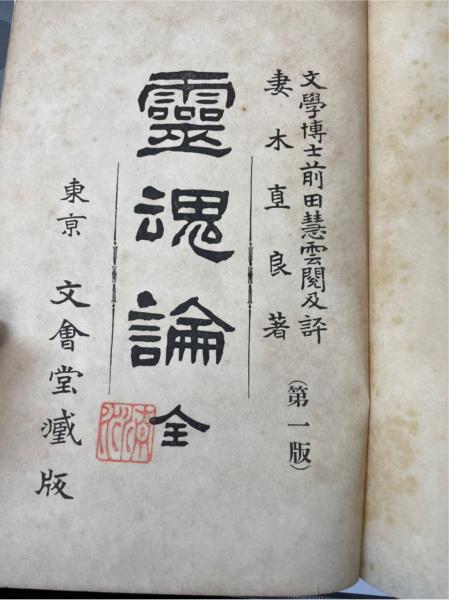 文學博士前田慧雲閱及評
妻木直良著
(第一版)
靈魂論全
東京 文會堂藏版